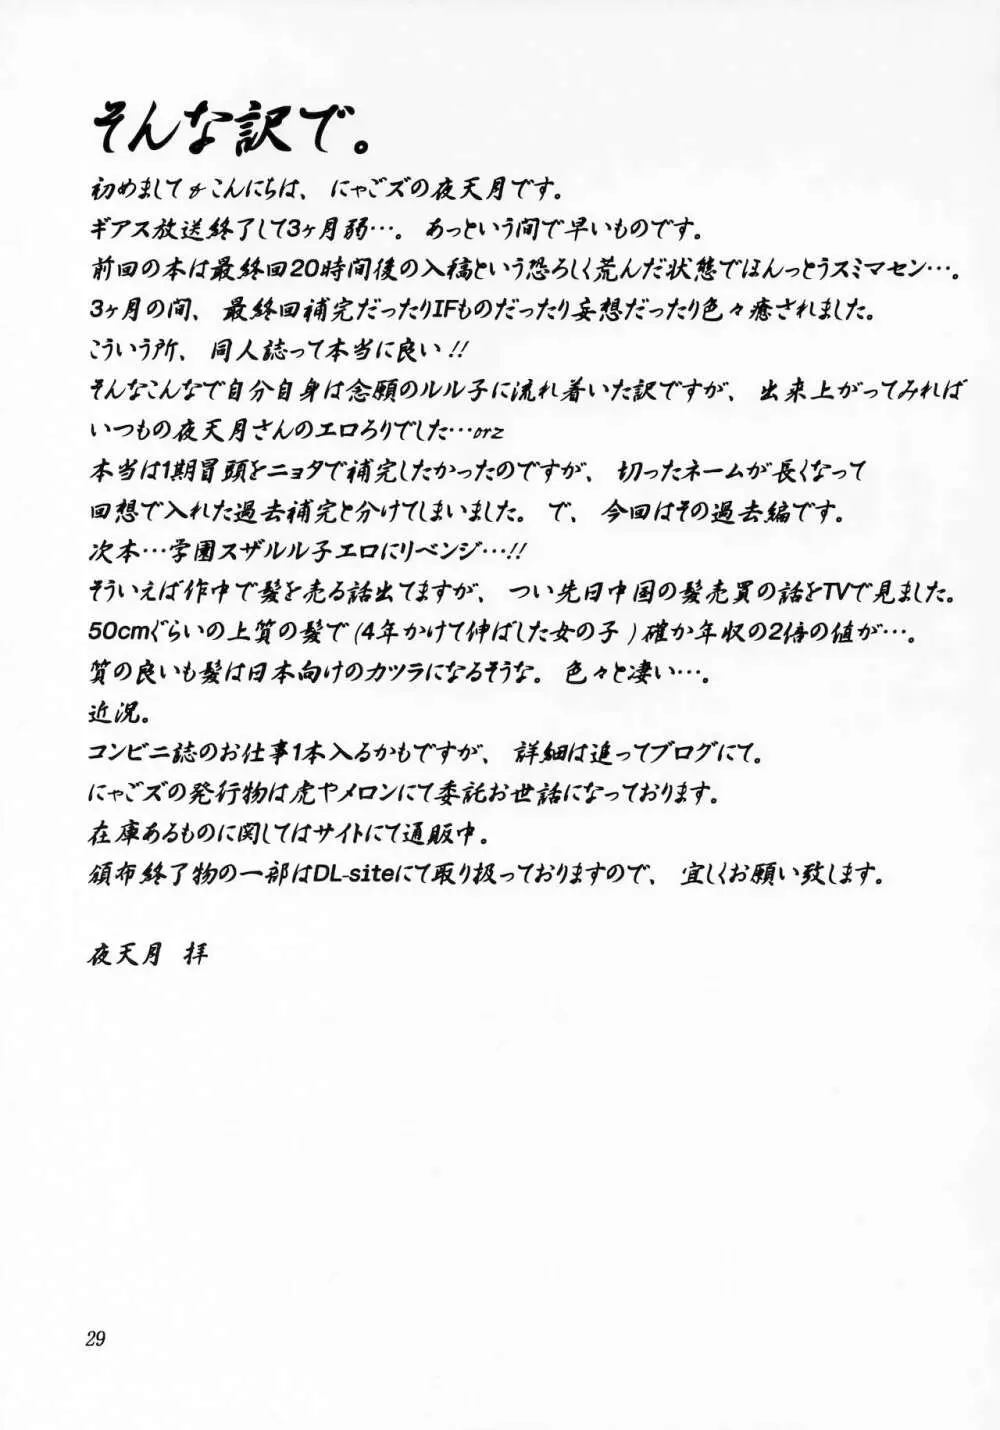 そんな訳で。
初めましてorこんにちは、にゃごズの夜天月です。
ギアス放送終了して3ヶ月弱…。あっという間で早いものです。
前回の本は最終回20時間後の入稿という恐ろしく荒んだ状態でほんっとうスミマセン…。
3ヶ月の間、最終回補完だったりIFものだったり妄想だったり色々癒されました。
こういう所、同人誌って本当に良い!!
そんなこんなで自分自身は念願のルル子に流れ着いた訳ですが、出来上がってみれば
いつもの夜天月さんのエロろりでした…orz
本当は1期冒頭をニョタで補完したかったのですが、切ったネームが長くなって
回想で入れた過去補完と分けてしまいました。で、今回はその過去編です。
次本…学園スザルル子エロにリベンジ…!!
そういえば作中で髪を売る話出てますが、つい先日中国の髪売買の話をTVで見ました。
50cmぐらいの上質の髪で(4年かけて伸ばした女の子)確か年収の2倍の値が…。
質の良いも髪は日本向けのカツラになるそうな。色々と凄い…。
近況。
コンビニ誌のお仕事1本入るかもですが、詳細は追ってブログにて。
にゃごズの発行物は虎やメロンにて委託お世話になっております。
在庫あるものに関してはサイトにて通販中。
頒布終了物の一部はDL-siteにて取り扱っておりますので、宜しくお願い致します。
夜天月 拝
29